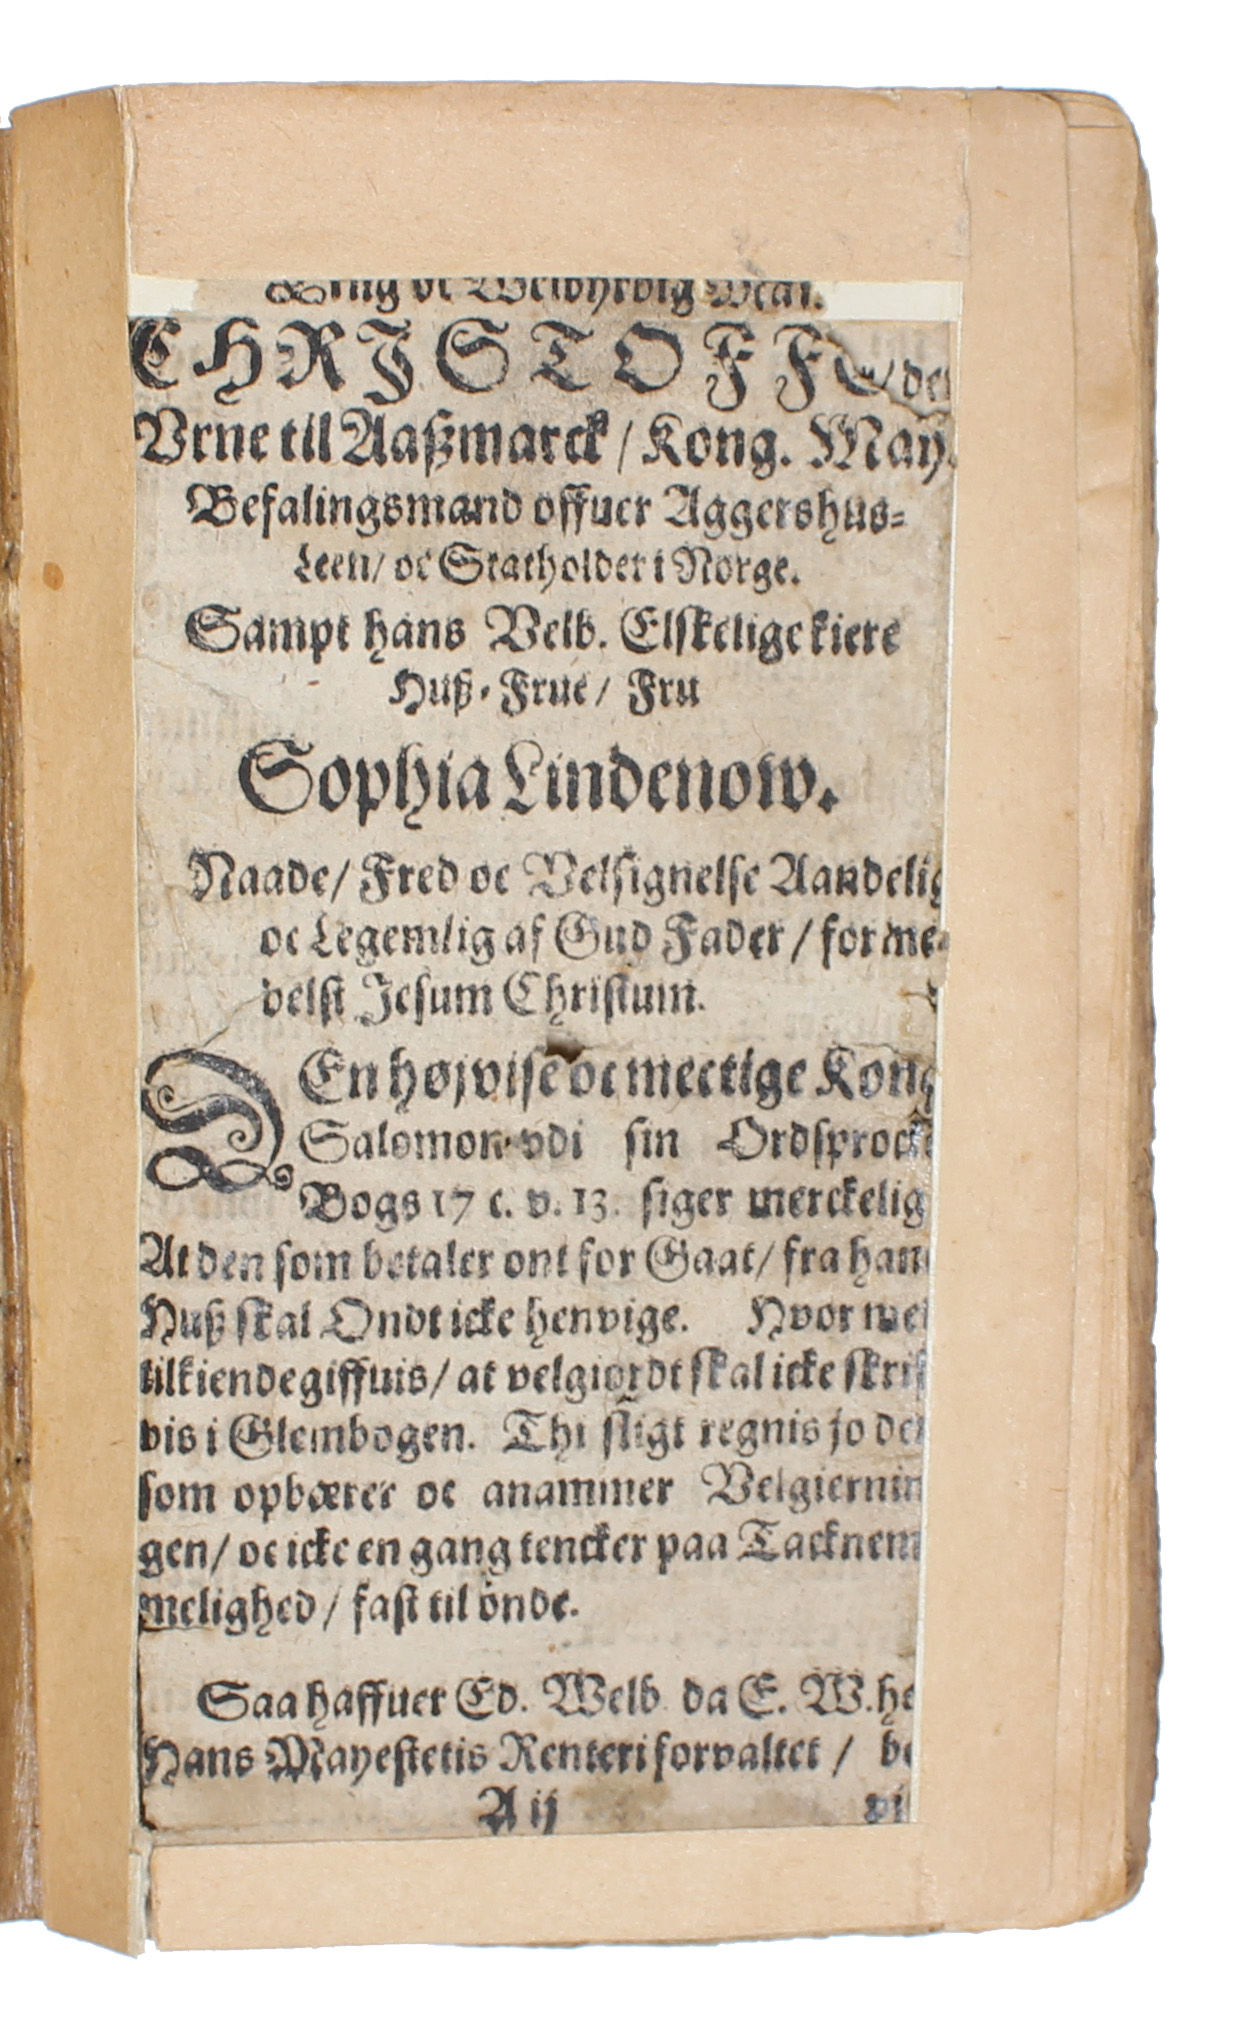 CHRISTOFF
Vrne til Aaßmarck / Kong. May.
Befalingsmand offuer Aggershus=
Leen / oc Statholder i Norge.
Sampt hans Velb. Elskelige kiere
Huß-Frue / Fru
Sophia Lindenow.
Naade / Fred oc Velsignelse Aandelig
oc Legemlig af Gud Fader / forme=
delst Jesum Christum.
DEn højvise oc mectige Kong
Salomon vdi sin Ordsprocks
Bogs 17 c. v. 13. siger merckelig
At den som betaler ont for Gaat / fra han
Huß skal Ondt icke henvige. Hvor me
tilkiendegiffuis / at velgiordt skal icke skrif
vis i Glembogen. Thi sligt regnis jo den
som opbærer oc anammer Velgiernin
gen / oc icke en gang tencker paa Tacknem
melighed / fast til onde.
Saa haffuer Ed. Welb. da E. W. he
Hans Mayestetis Renteri forvaltet / be
A ij